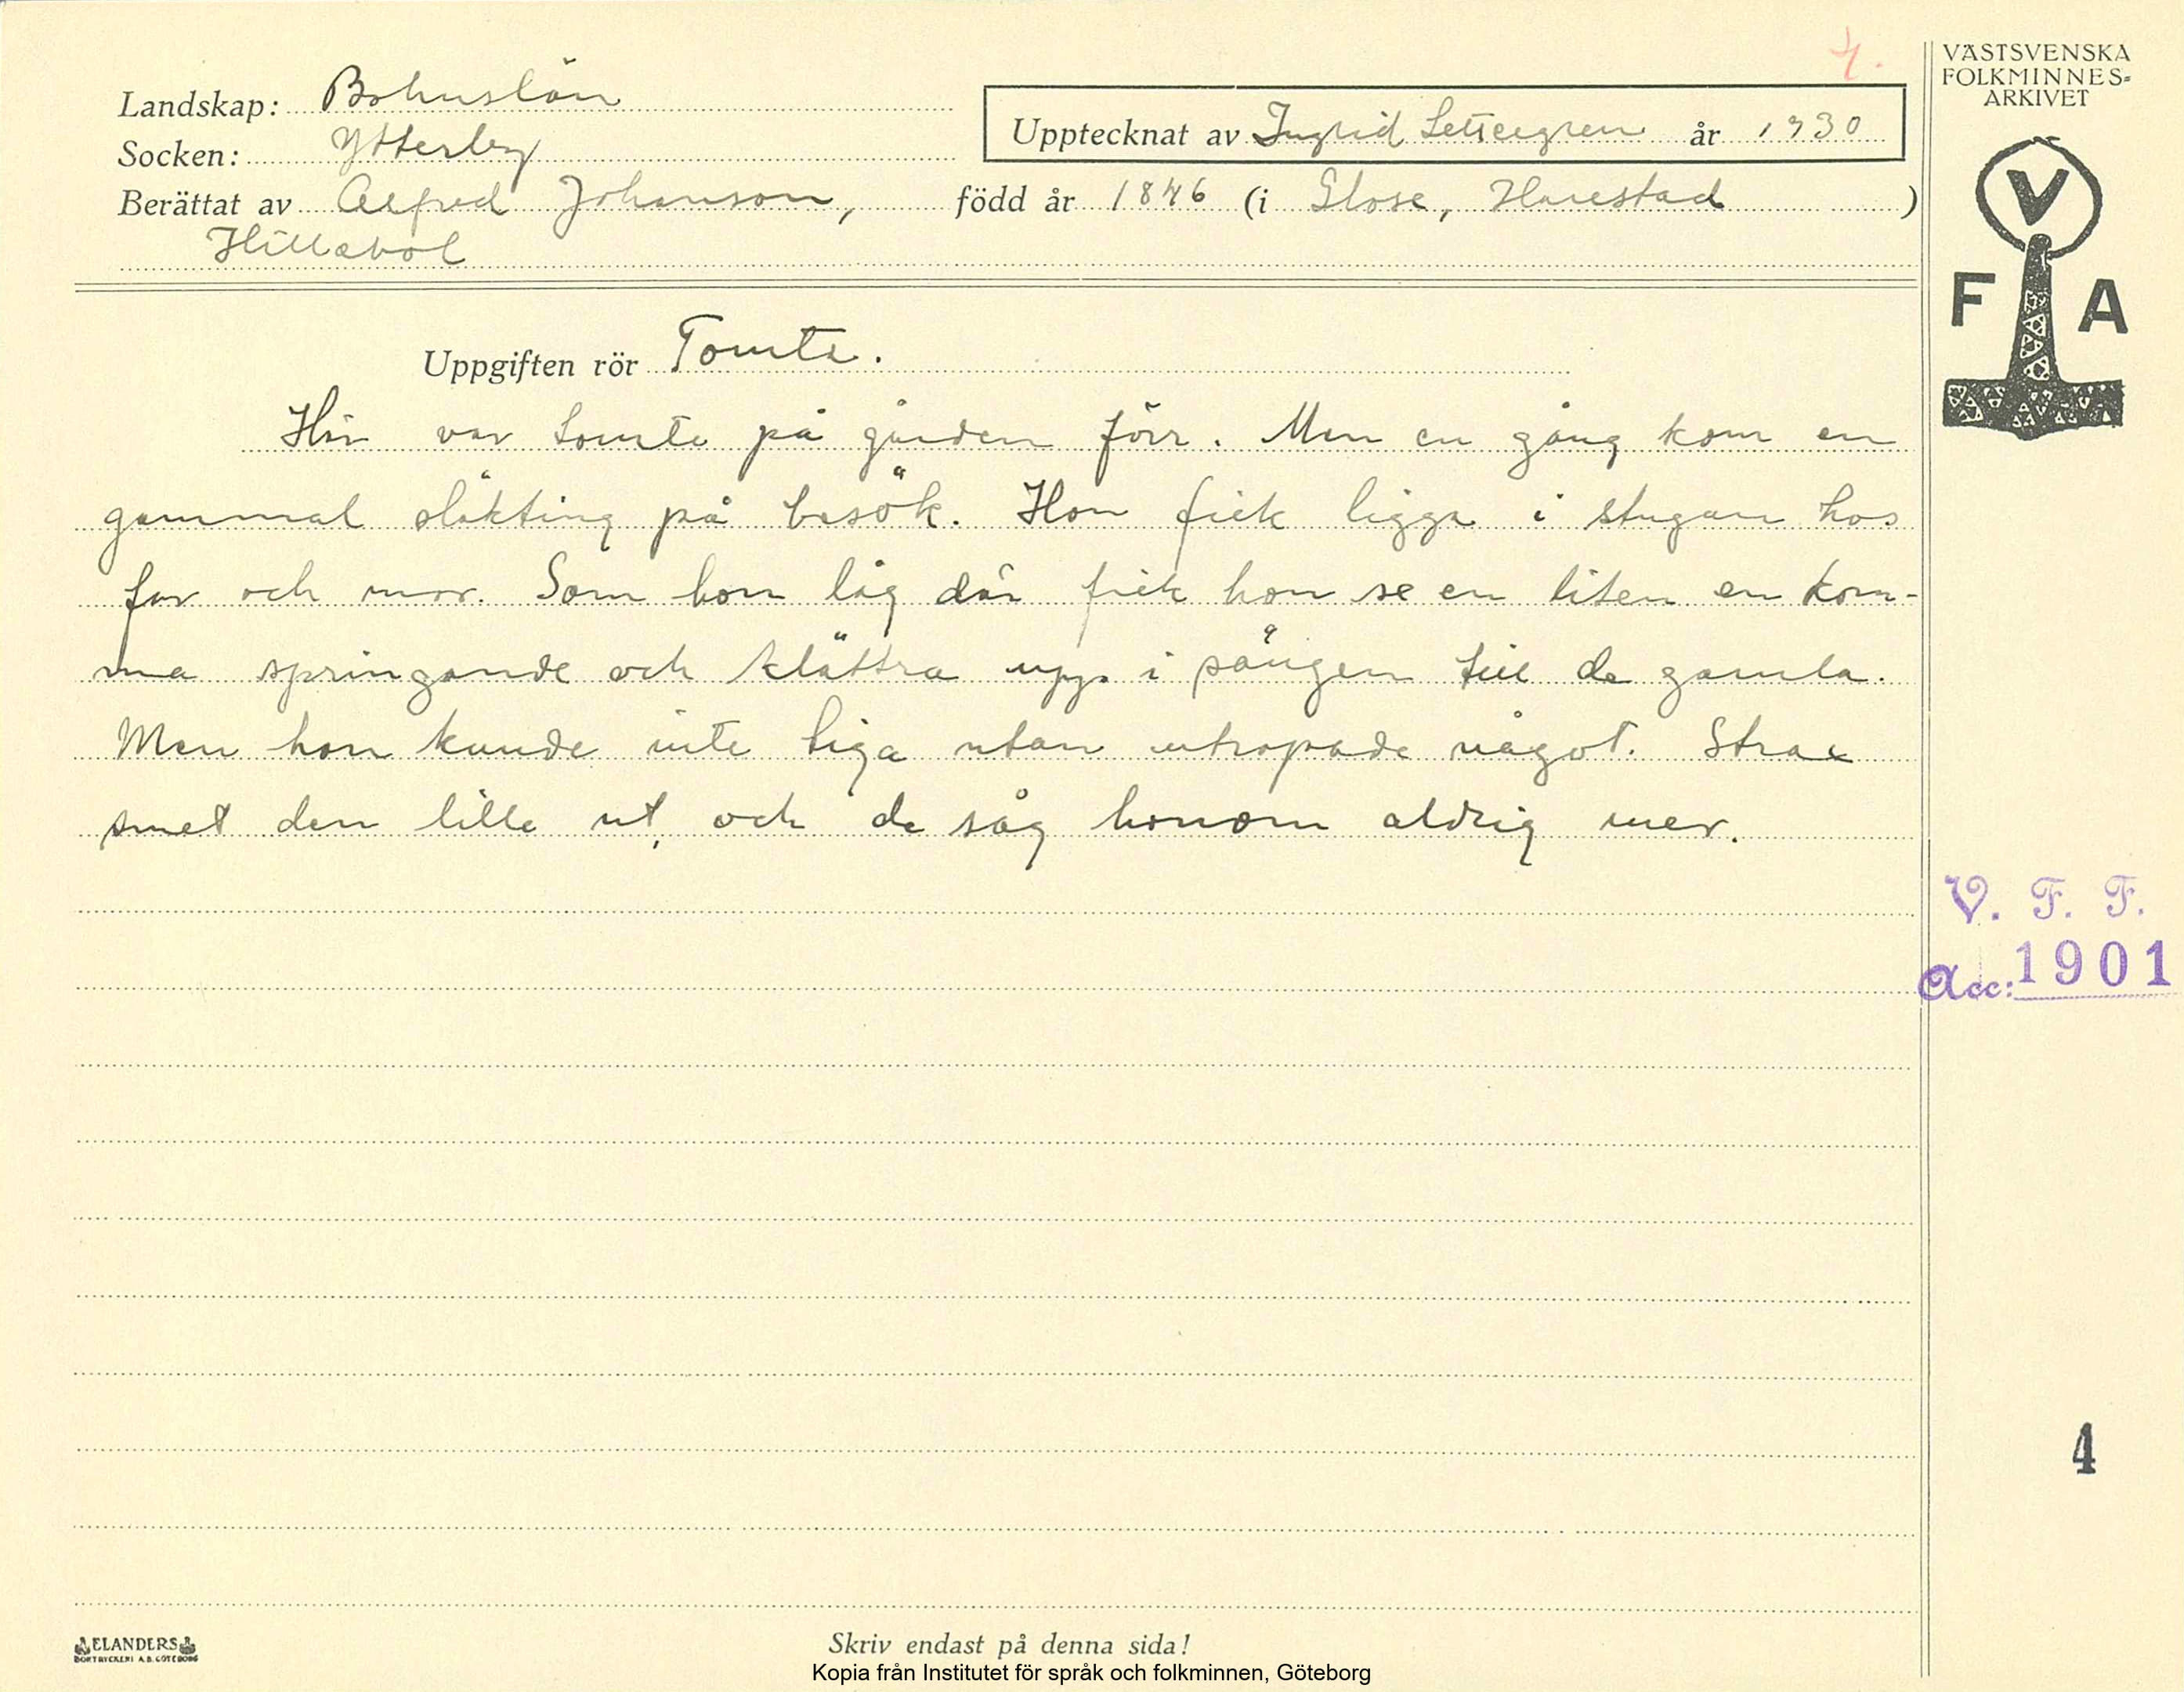 4.
VÄSTSVENSKA
FOLKMINNES=
ARKIVET
Landskap: Bohuslän
Upptecknat av Ingrid Settergren år 1930
Socken: Ytterby
Berättat av Alfred Johanson, född år 1846 (i Glose, Harestad )
V
F A
Uppgiften rör Tomte.
Här var tomte på gården förr. Men en gång kom en
gammal släkting på besök. Hon fick ligga i stugan hos
far och mor. Som hon låg där fick hon se en liten en kom-
ma springande och klättra upp i sängen till de gamla.
Men hon kunde inte tiga utan utropade något. Strax
smet den lille ut, och de såg honom aldrig mer.
V. F. F.
Acc: 1901
4
ELANDERS
BOKTRYCKERI A.B. GÖTEBORG
Skriv endast på denna sida!
Kopia från Institutet för språk och folkminnen, Göteborg